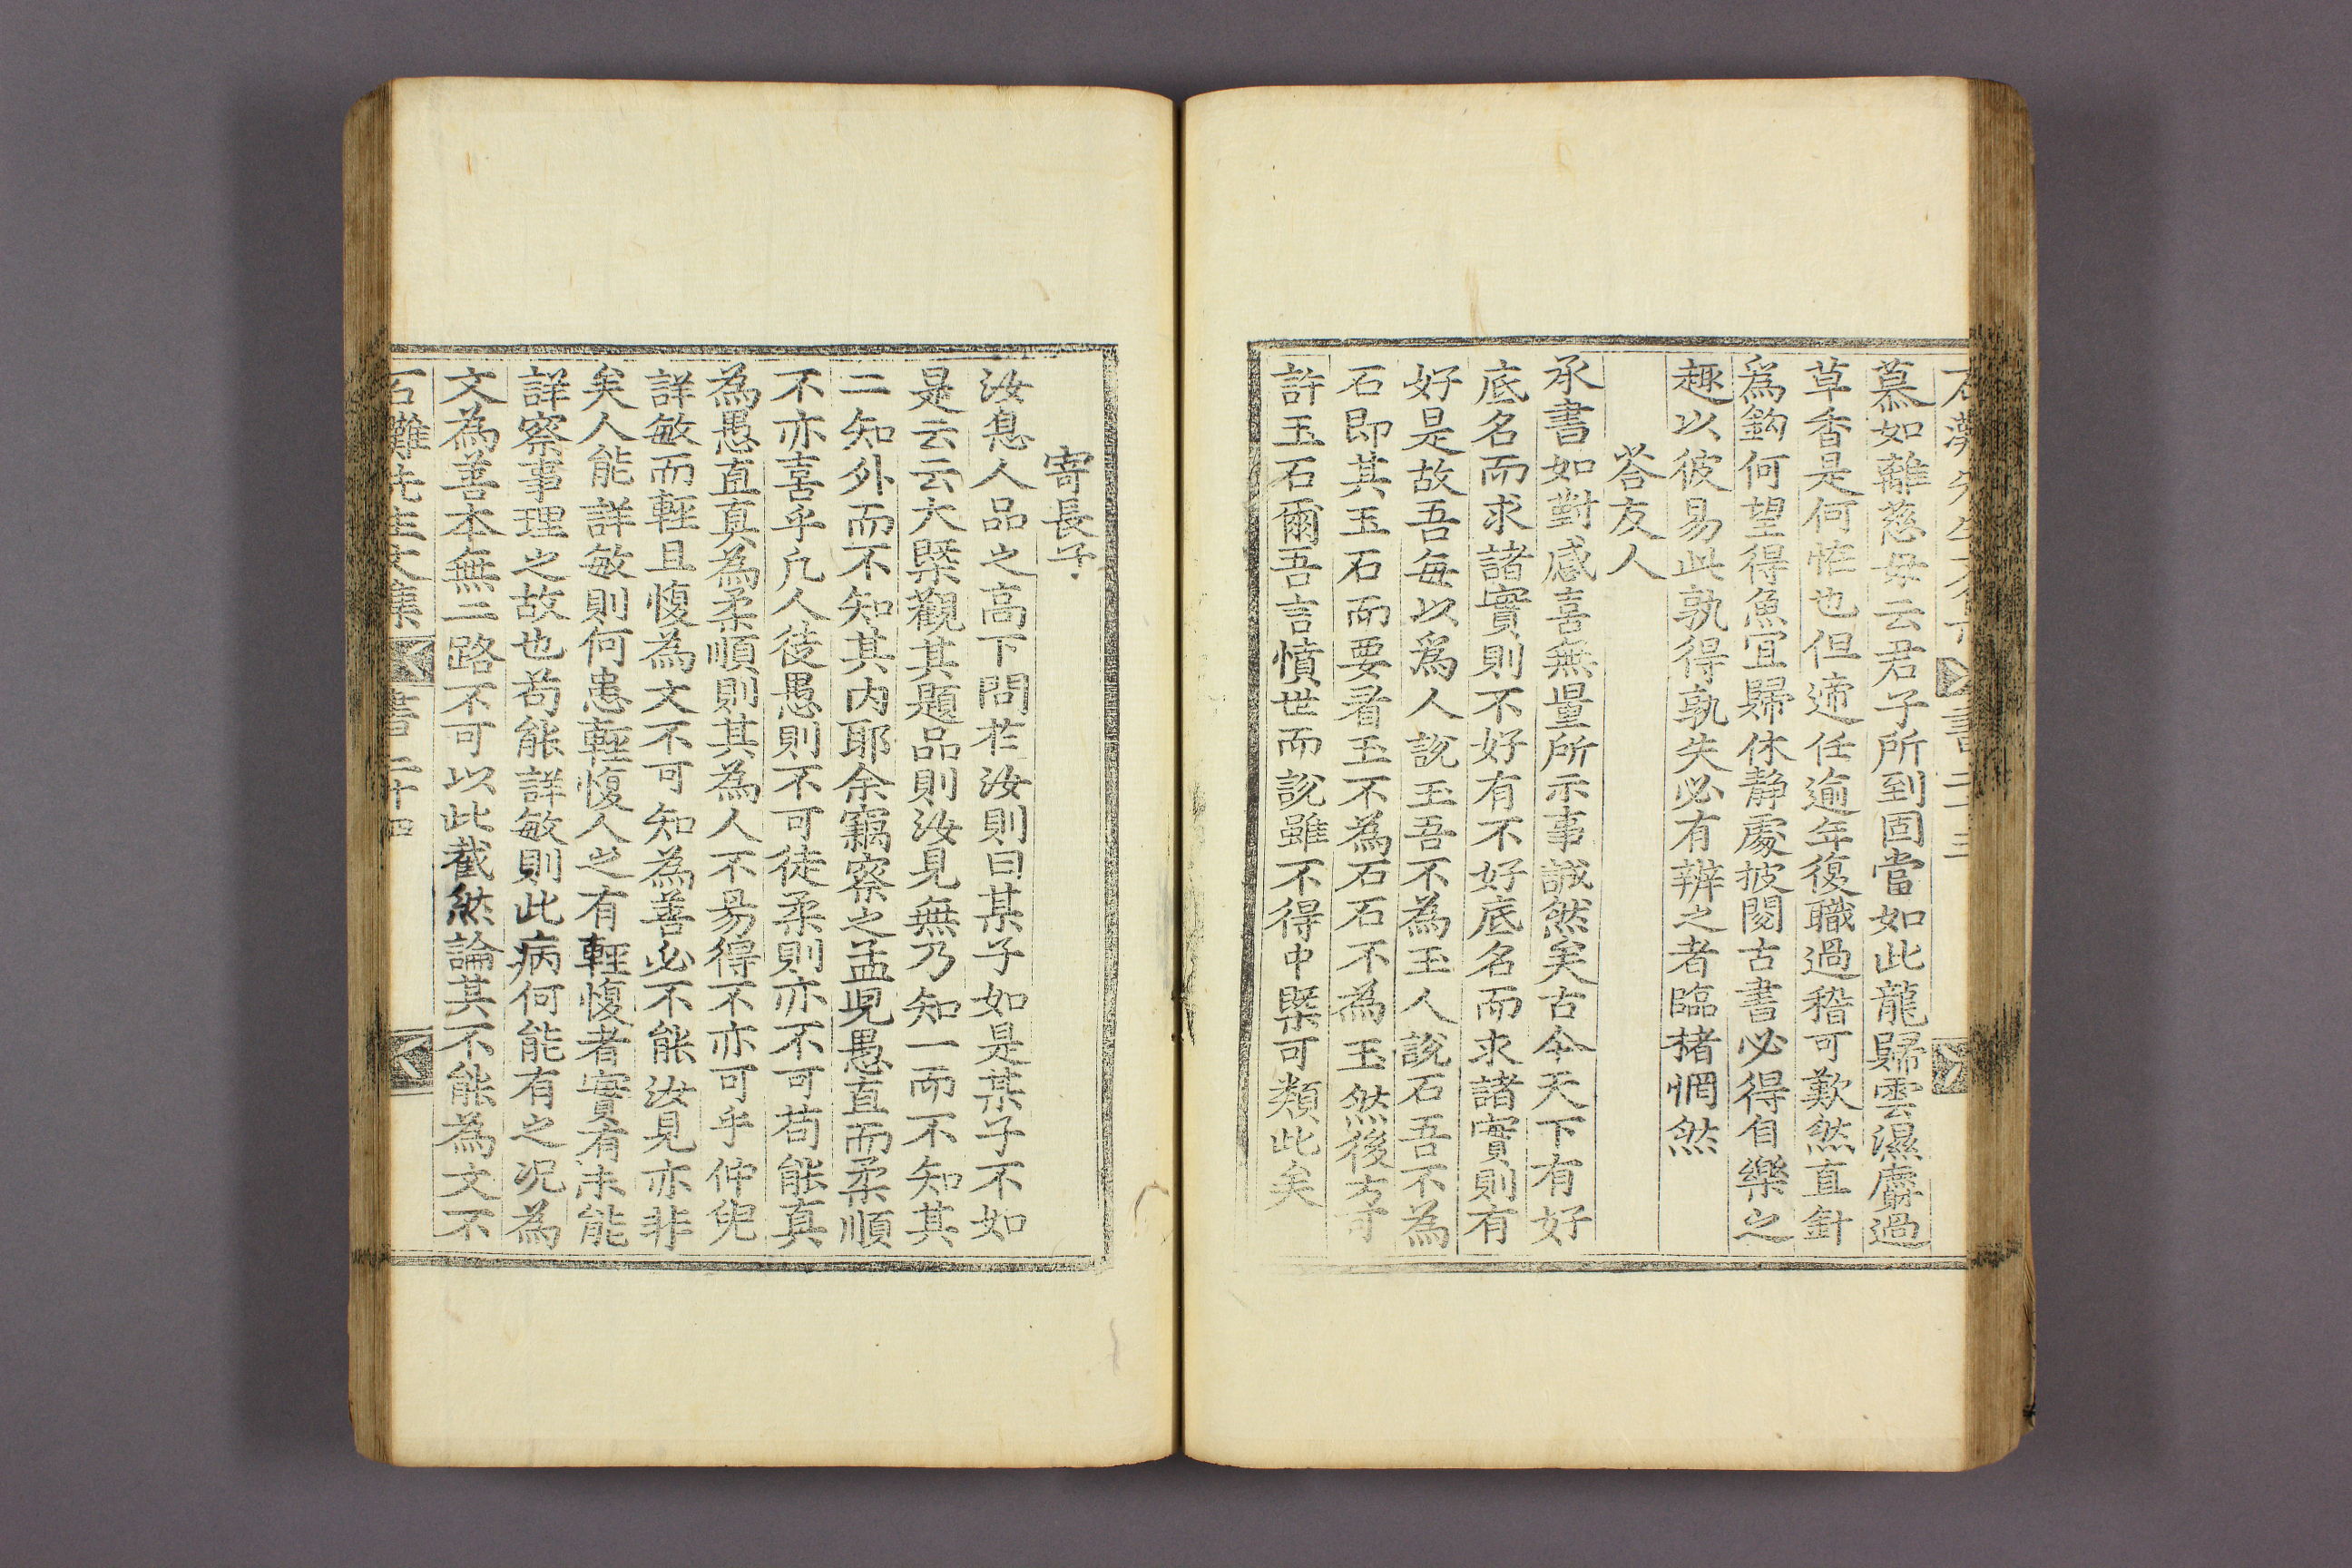 慕如離慈母云君子所到固當如此龍歸雲濕麝過
草香是何怍也但適任逾年復職過稽可歎然直針
爲鈎何望得魚宜歸休静處披閱古書必得自樂之
趣以彼易此孰得孰失必有辦之者臨楮惘然
答友人
承書如對感喜無量所示事誠然矣古今天下有好
底名而求諸實則不好有不好底名而求諸實則有
好是故吾每以爲人說玉吾不為玉人說石吾不為
石即其玉石而要看玉不為石石不為玉然後方可
許玉石爾吾言憤世而說雖不得中槩可類此矣
寄長子
汝息人品之高下問於汝則曰某子如是某子不如
是云云大槩觀其題品則汝見無乃知一而不知其
二知外而不知其内耶余竊察之孟兒愚直而柔順
不亦喜乎凡人徒愚則不可徒柔則亦不可苟能真
為愚直真為柔順則其為人不易得不亦可乎仲兒
詳敏而輕且愎為文不可知為善必不能汝見亦非
矣人能詳敏則何患輕愎人之有輕愎者實有未能
詳察事理之故也苟能詳敏則此病何能有之况為
文為善本無二路不可以此截然論其不能為文不
石灘先生文集 書 二十四